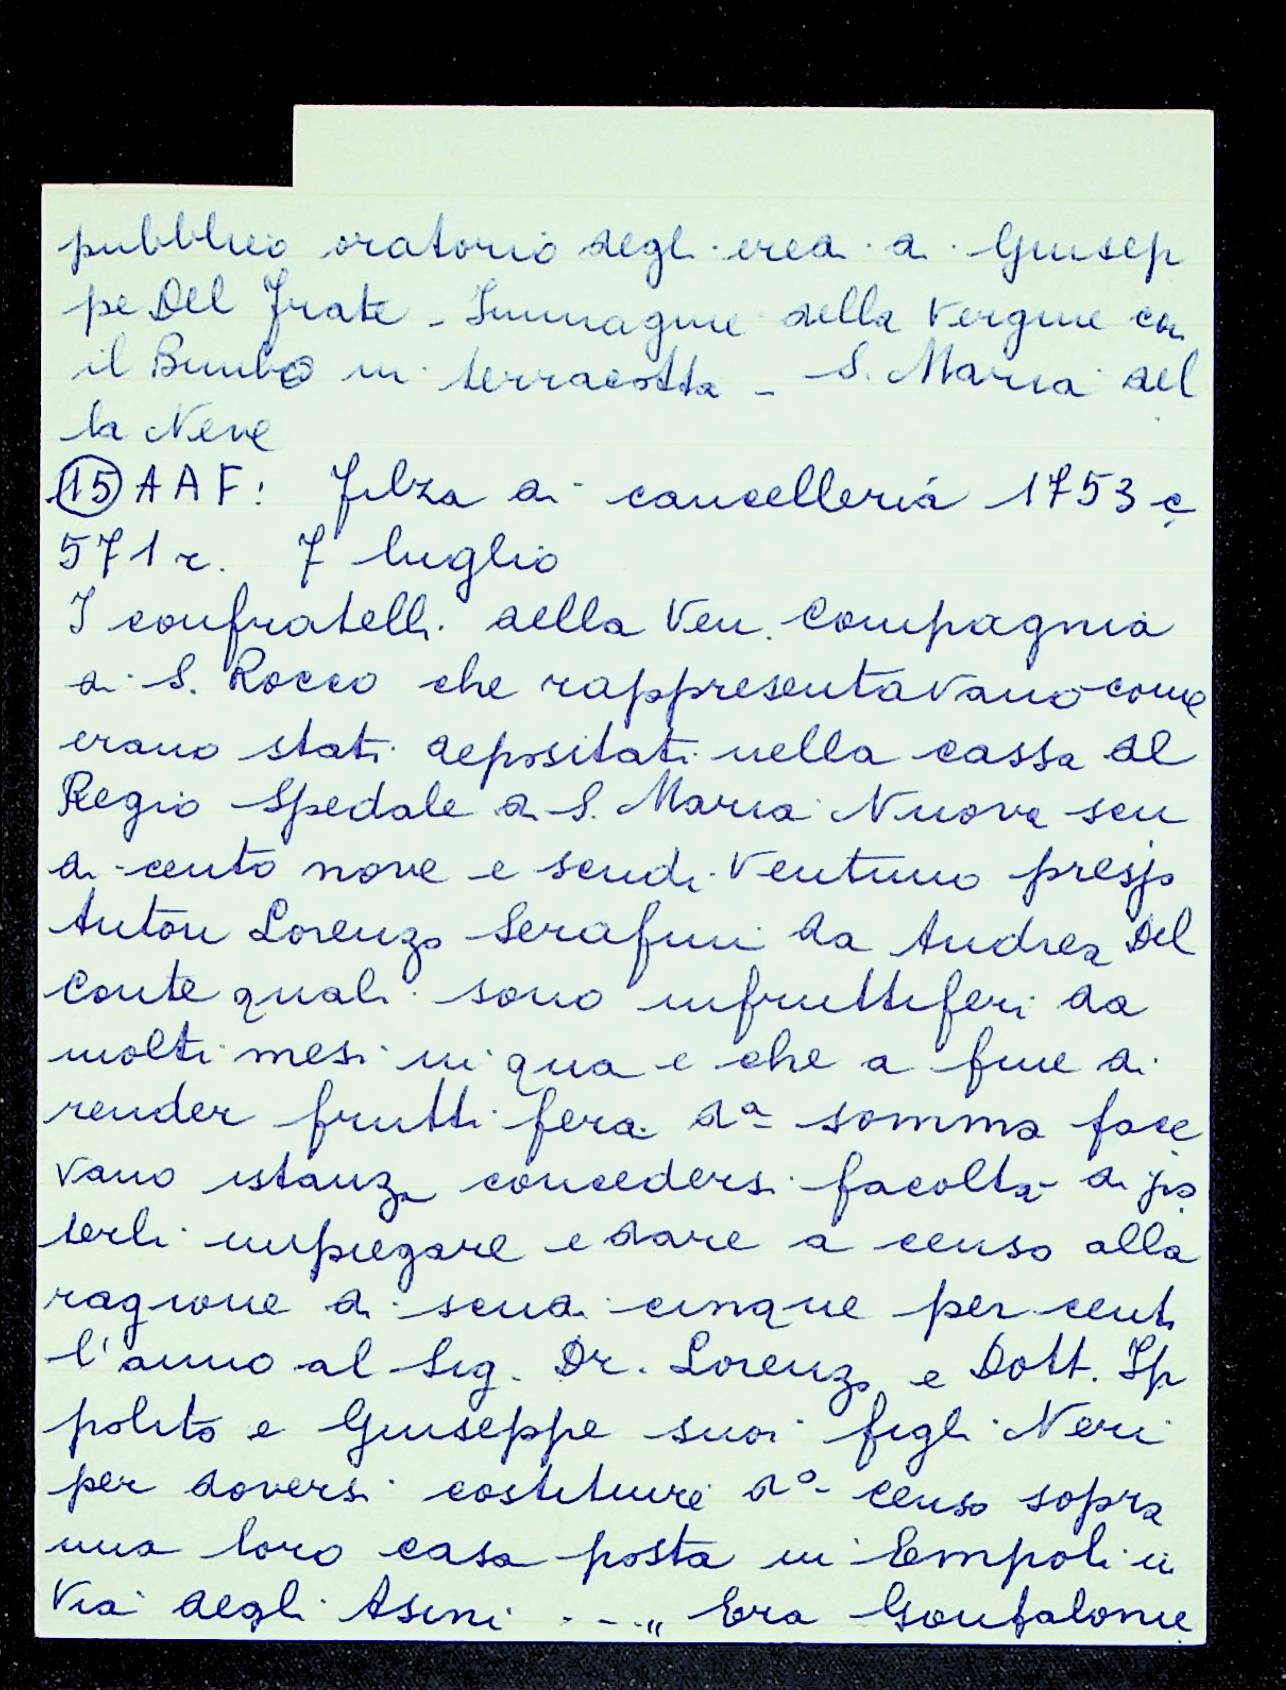 pubblico oratorio degli eredi di Giusep
pe Del Frate - Immagine della Vergine con
il Bimbo in terracotta - S. Maria del
la Neve
(15) A A F: Filza di cancelleria 1753 c
571 r. 7 luglio
I confratelli della Ven. Compagnia
di S. Rocco che rappresentavano come
erano stati depositati nella cassa del
Regio Spedale di S. Maria Nuova scu
di cento nove e scudi ventuno presso
Anton Lorenzo Serafini da Andrea Del
Conte quali sono infruttiferi da
molti mesi in qua e che a fine di
render fruttifera da somma face
vano istanza concedersi facoltà di po
terli impiegare e dare a censo alla
ragione di scudi cinque per cento
l'anno al Sig. Dr. Lorenzo e Dott. Ip
polito e Giuseppe suoi figli Neri
per doversi costituire do censo sopra
una loro casa posta in Empoli in
Via degli Asini - - - " Era Gonfalonie